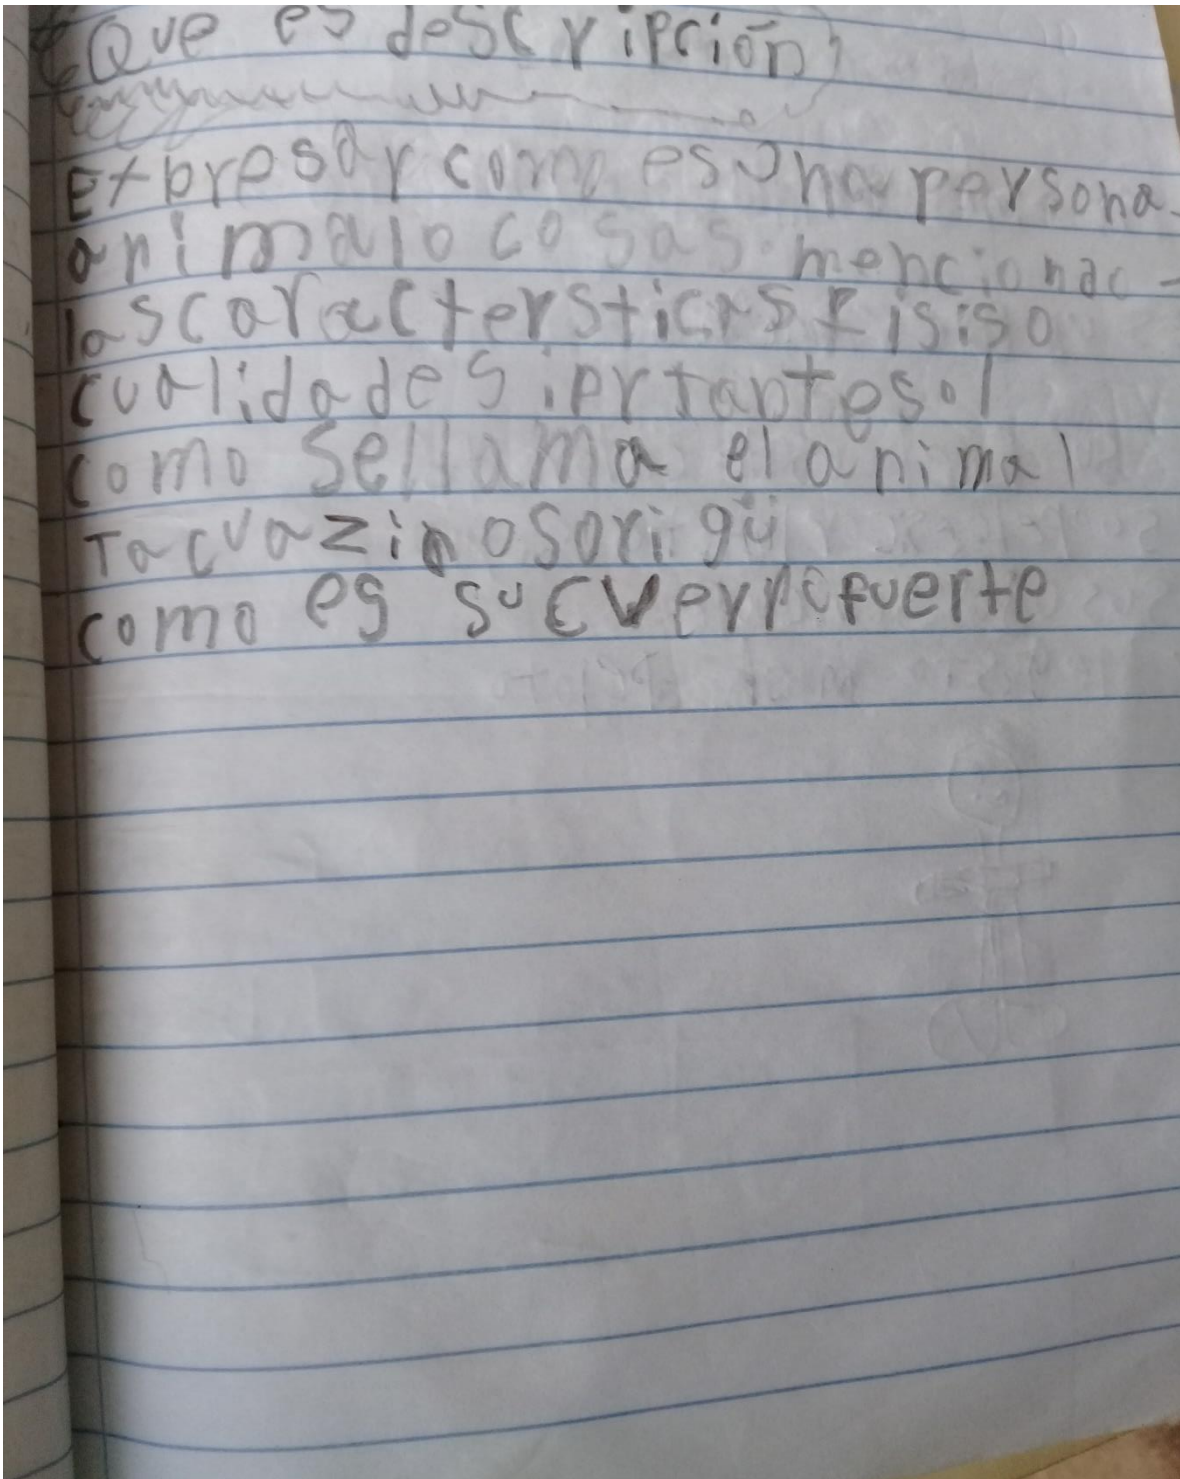 ¿Que es descripción?
Expresar como es una persona.
animal o cosas. mencionac -
las caractersticrs Fisis o
cualidades iprtantes.
como se llama el animal
Tacuazin osorigü
como es su cuerpo fuerte